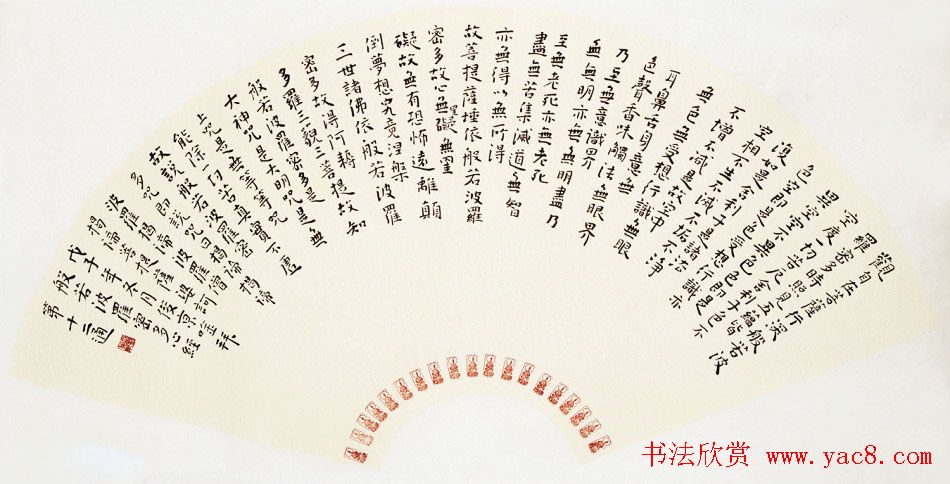 觀自在菩薩行深般若波
羅密多時照見五蘊皆
空度一切苦厄舍利子色不
異空空不異色色即是
空空即是色受想行識亦
復如是舍利子是諸法
空相不生不滅不垢不淨
不增不減是故空中
無色無受想行識無眼
耳鼻舌身意無
色聲香味觸法無眼界
乃至無意識界
無無明亦無無明盡乃
至無老死亦無老死
盡無苦集滅道無智
亦無得以無所得
故菩提薩埵依般若波羅
密多故心無罣礙無罣
礙故無有恐怖遠離顛
倒夢想究竟涅槃
三世諸佛依般若波羅
密多故得阿耨
多羅三藐三菩提故知
般若波羅密多是
大神咒是大明咒是無
上咒是無等等咒
能除一切苦真實不虛
故說般若波羅密
多咒即說咒曰揭諦揭諦
波羅揭諦波羅僧
揭諦菩提薩婆訶
戊子年冬月
般若波羅密多心經
第十三通
书法欣赏 www.yac8.com